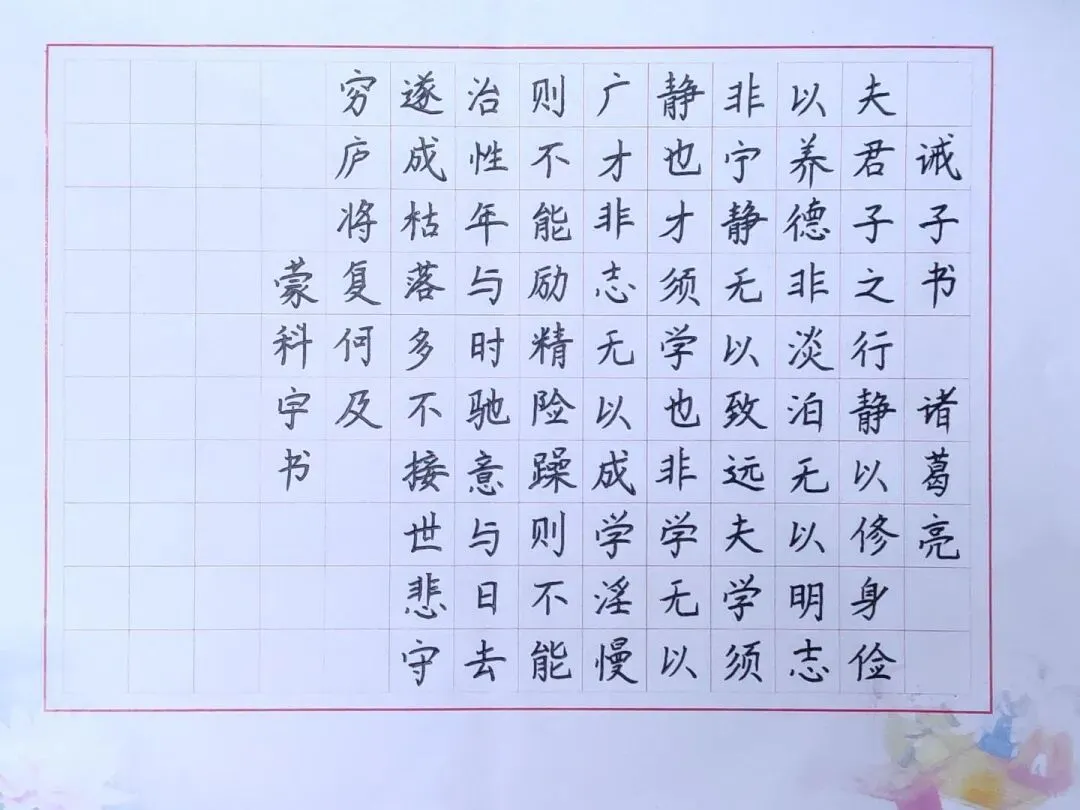 诫子书 诸葛亮
夫君子之行静以修身俭
以养德非淡泊无以明志
非宁静无以致远夫学须
静也才须学也非学无以
广才非志无以成学淫慢
则不能励精险躁则不能
治性年与时驰意与日去
遂成枯落多不接世悲守
穷庐将复何及
蒙科字书